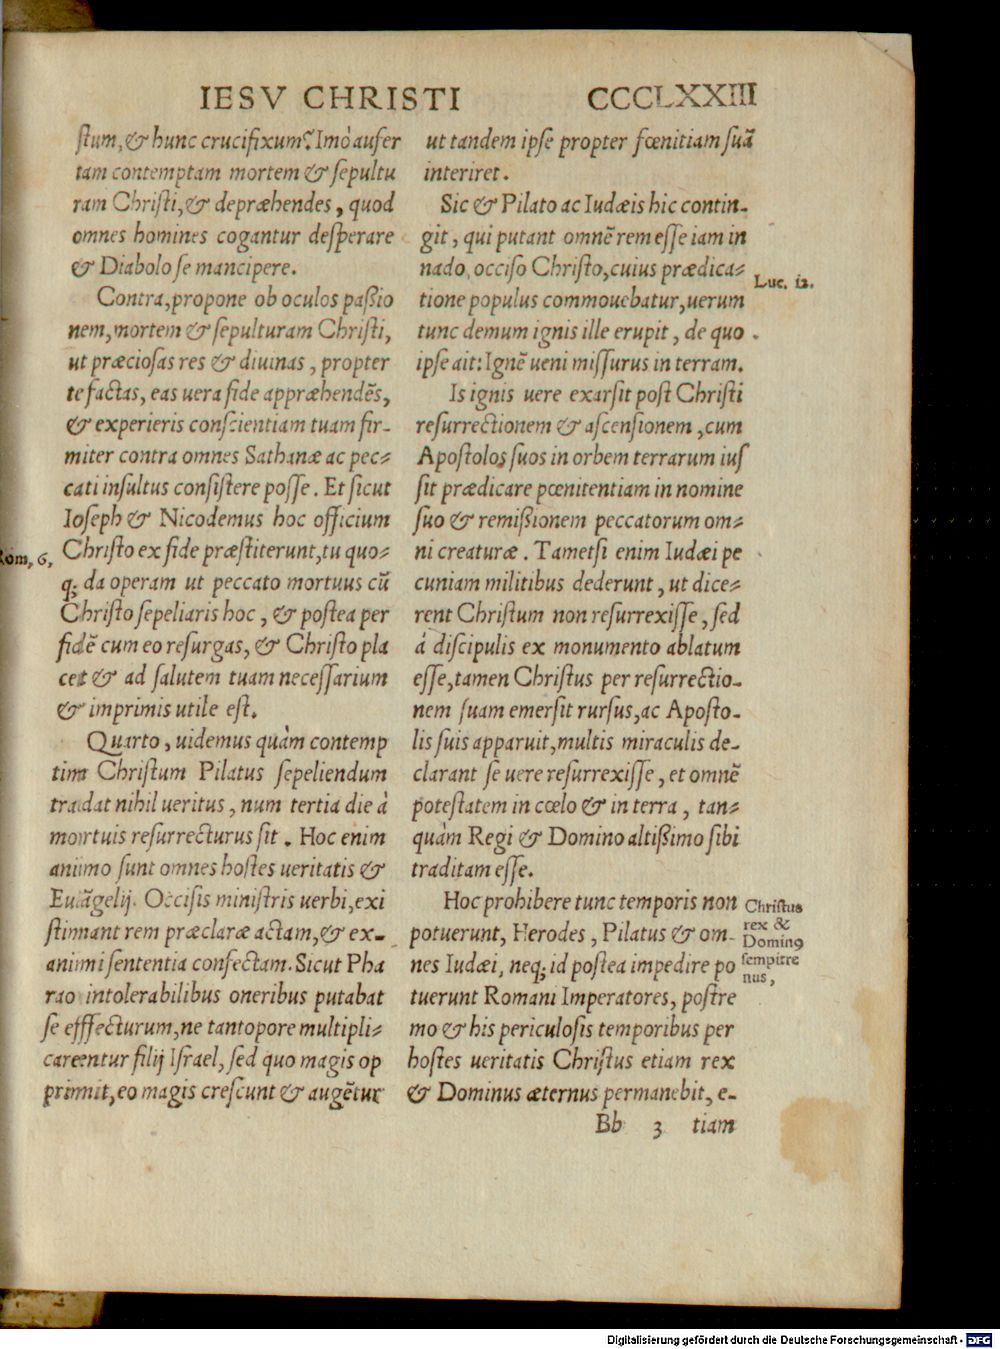 IESV CHRISTI CCCCLXXIII
ſtum, & hunc crucifixum? Imò aufer
tam contemptam mortem & ſepultu
ram Chriſti, & depræhendes, quod
omnes homines cogantur deſperare
& Diabolo ſe mancipere.
Contra, propone ob oculos paßio
nem, mortem & ſepulturam Chriſti,
ut præcioſas res & diuinas, propter
te factas, eas uera fide appræhendẽs,
& experieris conſcientiam tuam fir-
miter contra omnes Sathanæ ac pec-
cati inſultus conſiſtere poſſe. Et ſicut
Ioſeph & Nicodemus hoc officium
Rom, 6,
Chriſto ex fide præſtiterunt, tu quo-
q; da operam ut peccato mortuus cũ
Chriſto ſepeliaris hoc, & poſtea per
fidẽ cum eo reſurgas, & Chriſto pla
cet & ad ſalutem tuam neceſſarium
& imprimis utile eſt.
Quarto, uidemus quàm contemp
tim Chriſtum Pilatus ſepeliendum
tradat nihil ueritus, num tertia die à
mortuis reſurrecturus ſit. Hoc enim
animo ſunt omnes hoſtes ueritatis &
Euãgelij. Occiſis miniſtris uerbi, exi
ſtimant rem præclaræ actam, & ex-
animi ſententia confectam. Sicut Pha
rao intolerabilibus oneribus putabat
ſe efffecturum, ne tantopore multipli-
carentur filij Iſrael, ſed quo magis op
primit, eo magis creſcunt & augẽtur
ut tandem ipſe propter fœnitiam ſuã
interiret.
Sic & Pilato ac Iudæis hic contin-
git, qui putant omnẽ rem eſſe iam in
nado, occiſo Chriſto, cuius prædica-
Luc. 12.
tione populus commouebatur, uerum
tunc demum ignis ille erupit, de quo
ipſe ait: Ignẽ ueni miſſurus in terram.
Is ignis uere exarſit poſt Chriſti
reſurrectionem & aſcenſionem, cum
Apoſtolos ſuos in orbem terrarum iuſ
ſit prædicare pœnitentiam in nomine
ſuo & remißionem peccatorum om-
ni creaturæ. Tametſi enim Iudæi pe
cuniam militibus dederunt, ut dice-
rent Chriſtum non reſurrexiſſe, ſed
á diſcipulis ex monumento ablatum
eſſe, tamen Chriſtus per reſurrectio-
nem ſuam emerſit rurſus, ac Apoſto-
lis ſuis apparuit, multis miraculis de-
clarant ſe uere reſurrexiſſe, et omnẽ
poteſtatem in cœlo & in terra, tan-
quàm Regi & Domino altißimo ſibi
traditam eſſe.
Hoc prohibere tunc temporis non
potuerunt, Herodes, Pilatus & om-
nes Iudæi, neq; id poſtea impedire po
tuerunt Romani Imperatores, poſtre
mo & his periculoſis temporibus per
hoſtes ueritatis Chriſtus etiam rex
& Dominus æternus permanebit, e-
Chriſtus
rex &
Doming
ſempitre
nus,
Bb 3 tiam
Digitalisierung gefördert durch die Deutsche Forschungsgemeinschaft - DFG